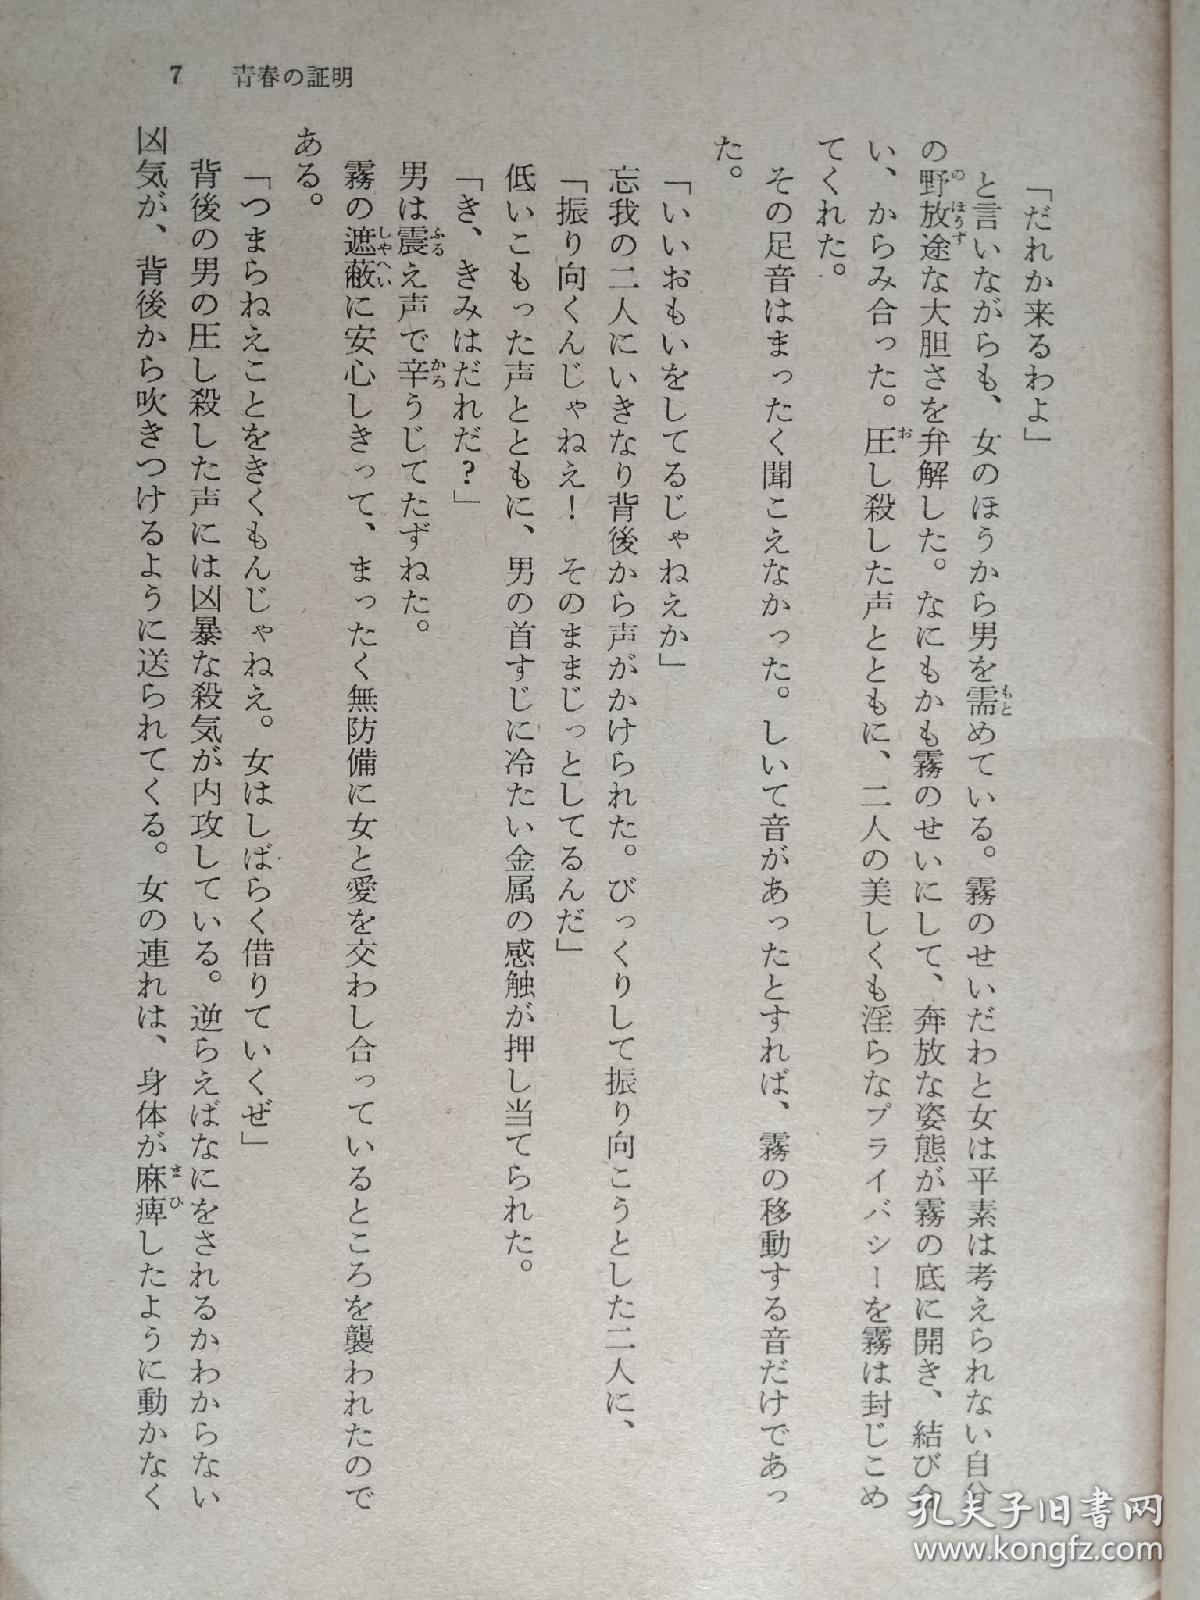 7　青春の証明
「だれか来るわよ」
と言いながらも、女のほうから男を需めている。霧のせいだわと女は平素は考えられない自分
の野放途な大胆さを弁解した。なにもかも霧のせいにして、奔放な姿態が霧の底に開き、結び合
い、からみ合った。圧し殺した声とともに、二人の美しくも淫らなプライバシーを霧は封じこめ
てくれた。
その足音はまったく聞こえなかった。しいて音があったとすれば、霧の移動する音だけであっ
た。
「いいおもいをしてるじゃねえか」
忘我の二人にいきなり背後から声がかけられた。びっくりして振り向こうとした二人に、
「振り向くんじゃねえ！　そのままじっとしてるんだ」
低いこもった声とともに、男の首すじに冷たい金属の感触が押し当てられた。
「き、きみはだれだ？」
男は震え声で辛うじてたずねた。
霧の遮蔽に安心しきって、まったく無防備に女と愛を交わし合っているところを襲われたので
ある。
「つまらねえことをきくもんじゃねえ。女はしばらく借りていくぜ」
背後の男の圧し殺した声には凶暴な殺気が内攻している。逆らえばなにをされるかわからない
凶気が、背後から吹きつけるように送られてくる。女の連れは、身体が麻痺したように動かなく
孔夫子旧书网
www.kongfz.com